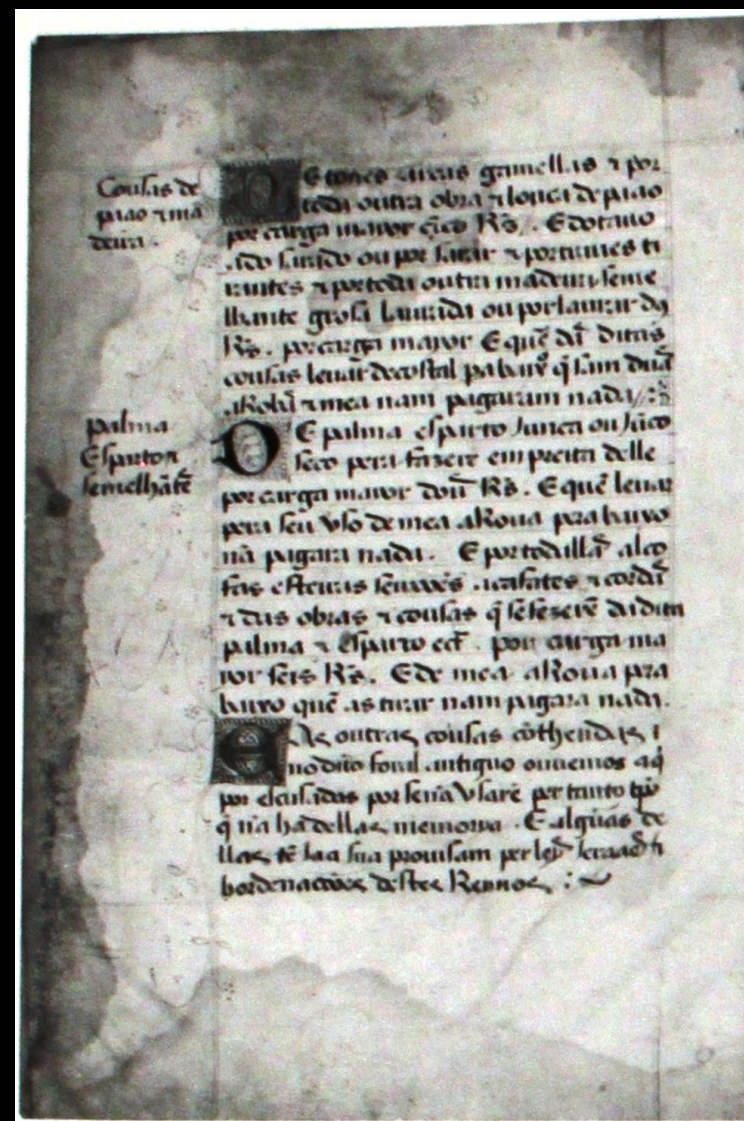 Cousas de
paao & ma
deira.
DE tones arcas gamellas & por
toda outra obra & louça de paao
por carga mayor çĩco Rs̃. E do tauo
ado sarrado ou por sarrar & por traues ti
rantes & por toda outra madeira seme
lhante grosa laurada ou por laurar
Rs̃. por carga mayor E quẽ das ditas
cousas leuar de costal pa baixo q̃ sam duas
aRobas & mea nam pagaram nada
palma
Esparto &
semelhãtes
DE palma esparto Junca ou Jũco
seco pera fazerẽ empreita delle
por carga mayor dous Rs̃. E quẽ leuar
pera seu vso de mea aRoua pera baixo
nã pagara nada. E por todallas alco
fas esteiras seirões açafates & cordas
& das obras & cousas q̃ se fezerẽ da dita
palma & esparto ect̃. por carga ma
yor seis Rs̃. E de mea aRoua pera
baixo quẽ as tirar nam pagara nada.
E As outras cousas cõthendas
no dito foral antiguo ouuemos aq̃
por escusadas por se nã vsarẽ per tanto tpõ
q̃ nã ha dellas memorya. E algũas de
llas tẽ Jaa sua prouisam per leys geraaes &
hordenações destes Reynos